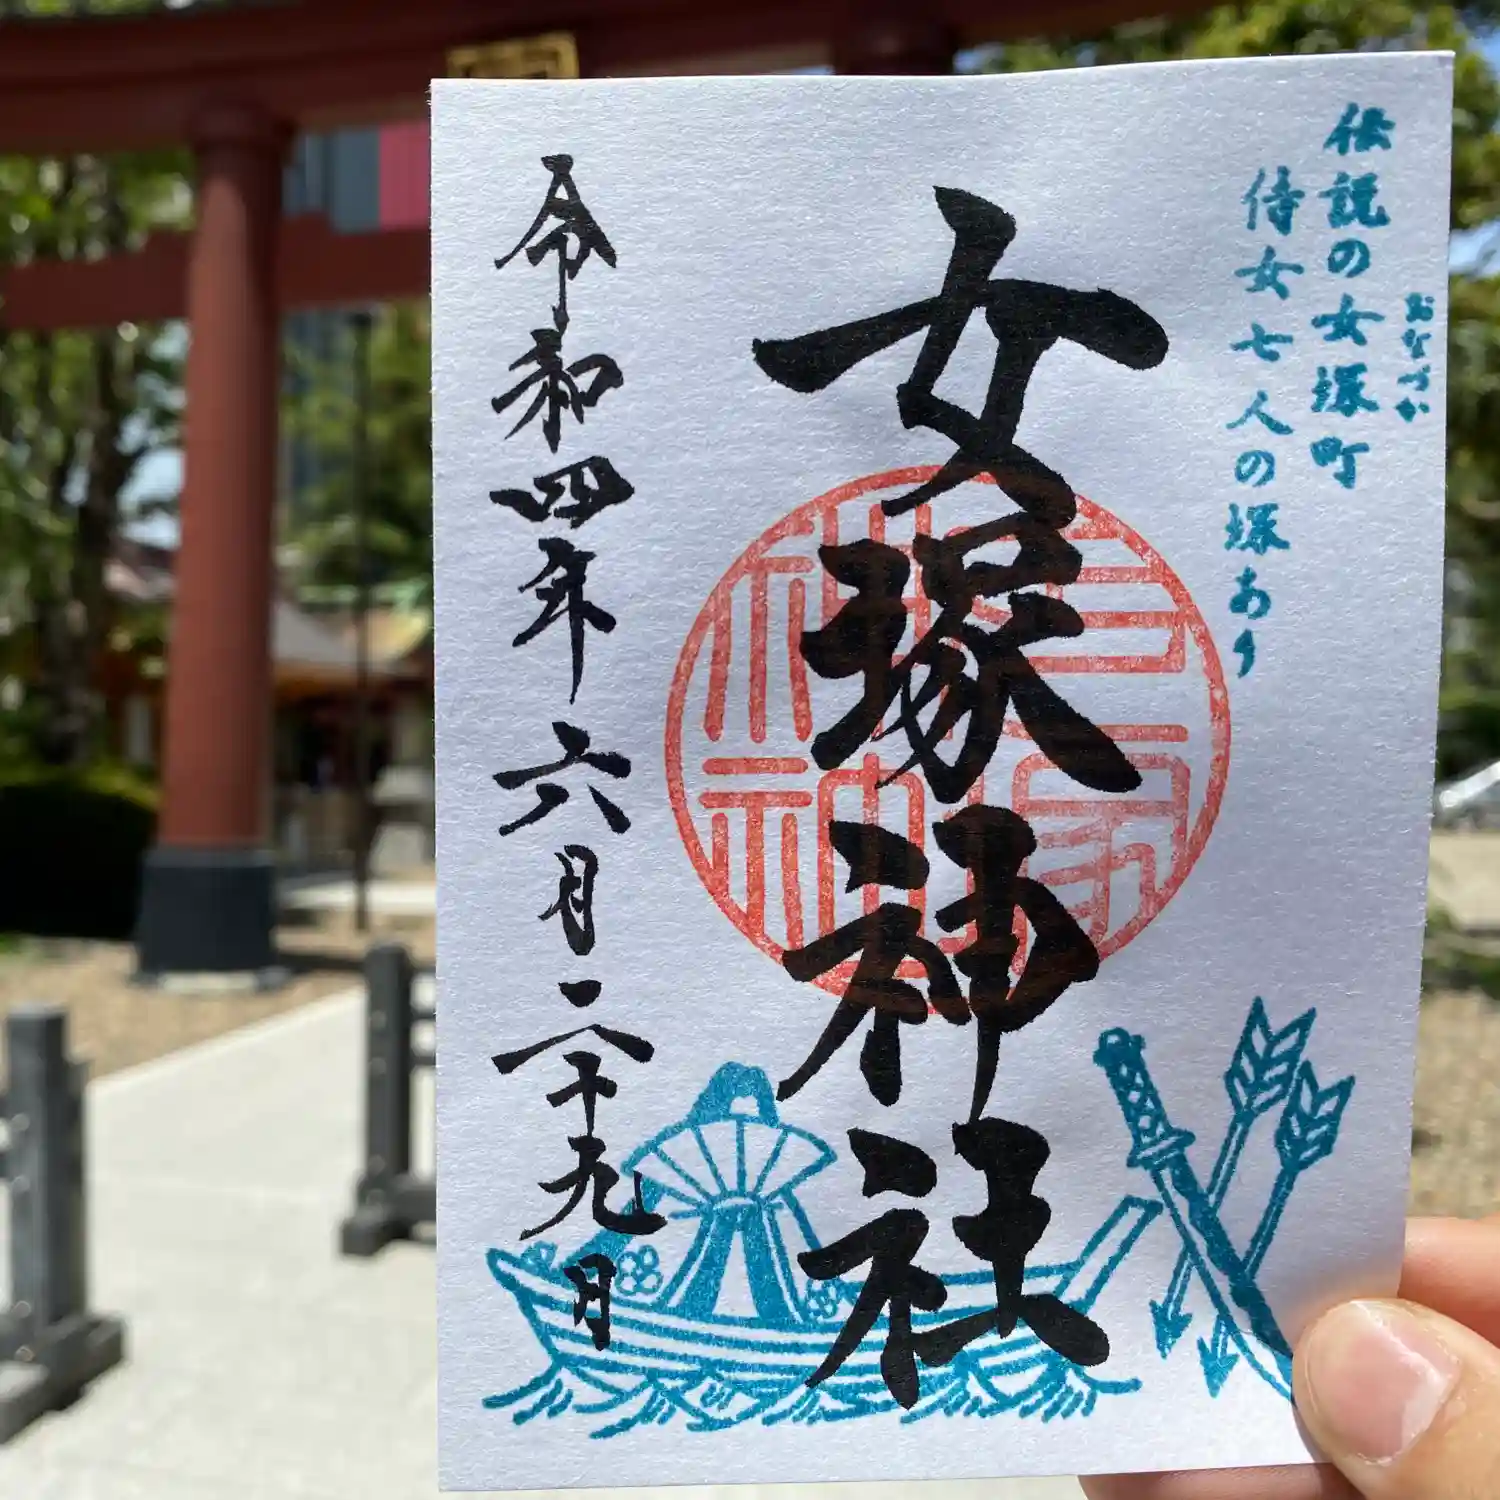 おなづか
伝説の女塚町
侍女七人の塚あり
女塚神社
令和四年六月二十九日